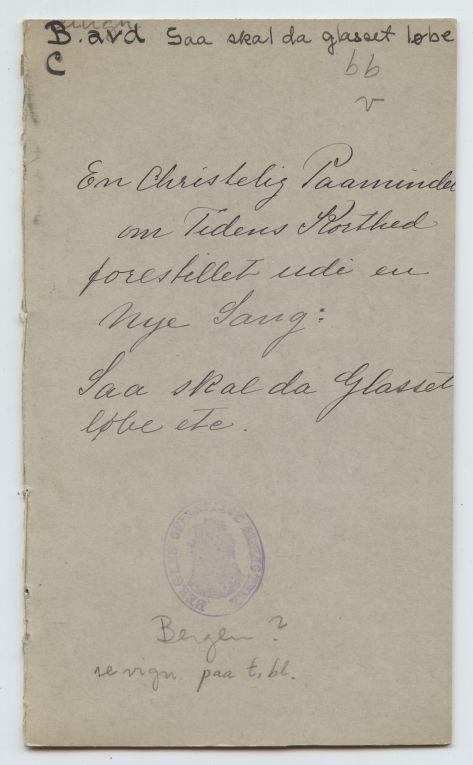 B. avd Saa skal da glasset løbe
C
bb
v
En Christelig Paaminde
om Tidens Korthed
forestillet udi en
Nye Sang:
Saa skal da Glasset
løbe etc.
BERGENS OFFENTLIGE BIBLIOTHEK
Bergen?
se vign. paa t. bl.